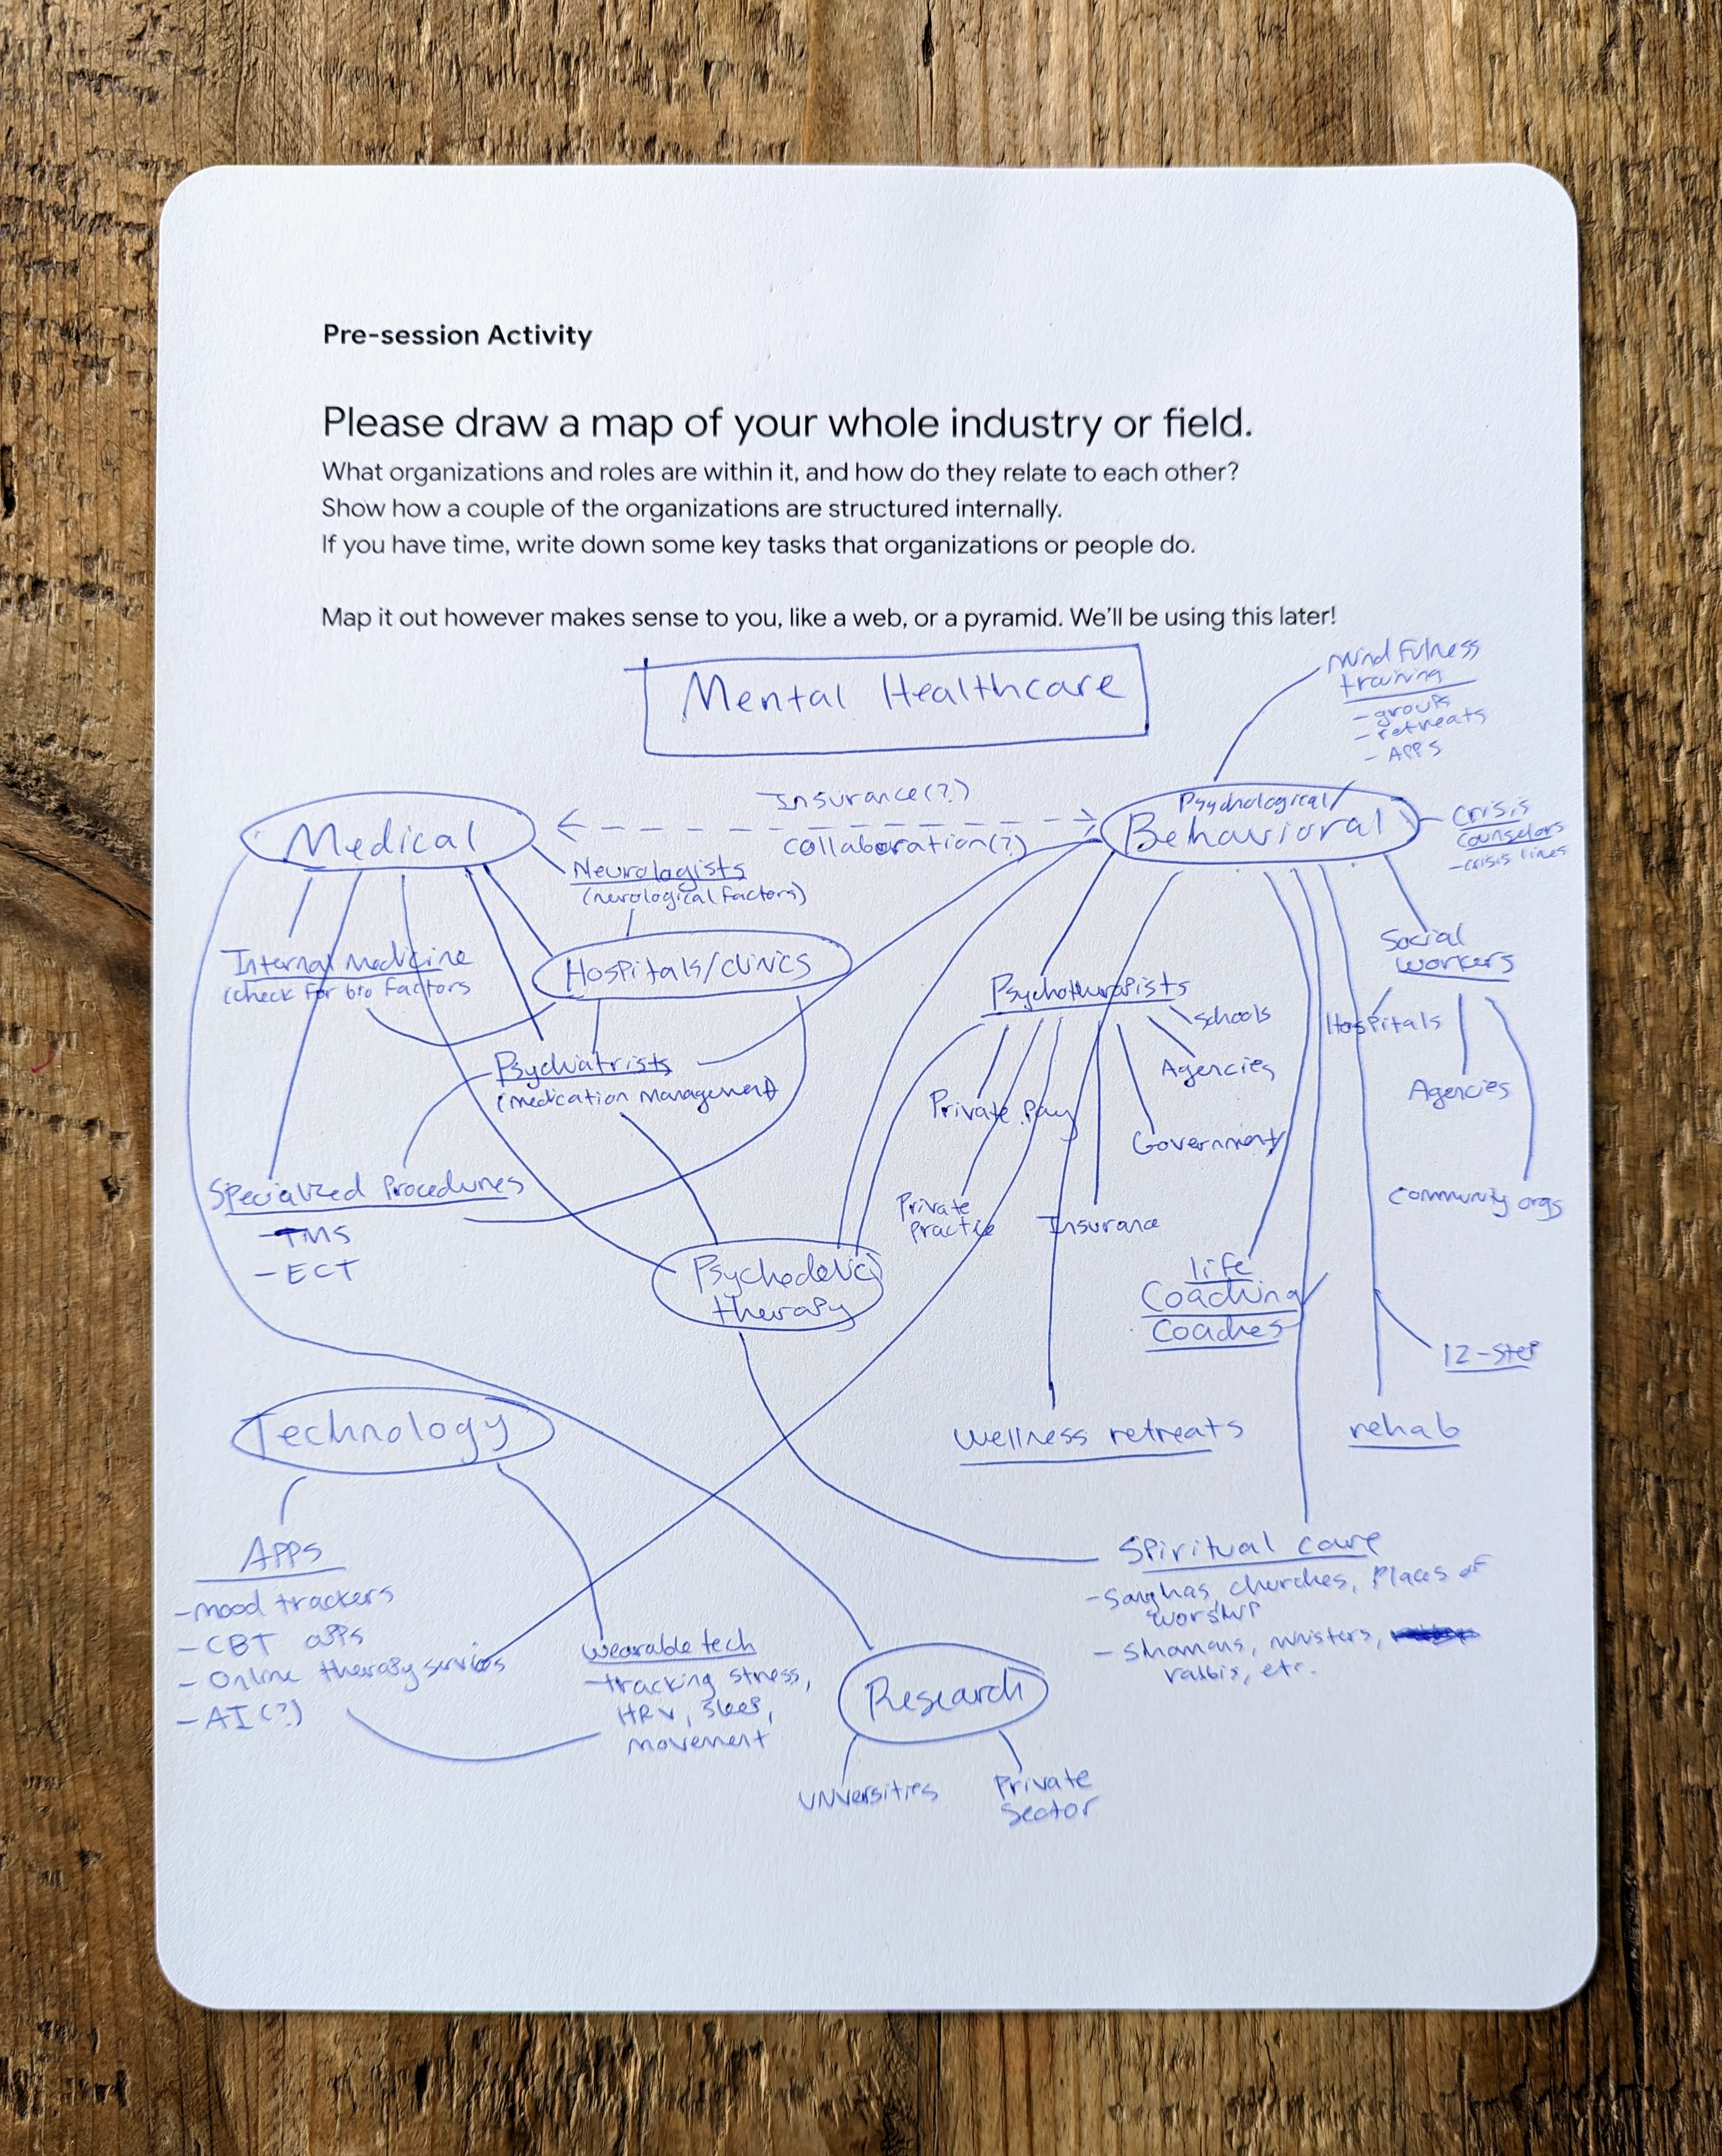 Pre-session Activity
Please draw a map of your whole industry or field.
What organizations and roles are within it, and how do they relate to each other?
Show how a couple of the organizations are structured internally.
If you have time, write down some key tasks that organizations or people do.
Map it out however makes sense to you, like a web, or a pyramid. We'll be using this later!
Mental Healthcare
Mindfulness
training
- groups
- retreats
- APPS
Insurance(?)
collaboration(?)
Medical
Psychological/
Behavioral
Crisis
Counselors
- crisis lines
Neurologists
(neurological factors)
Internal medicine
(check for bio factors
Hospitals/clinics
Psychiatrists
(medication management)
Specialized Procedures
- TMS
- ECT
Psychedelic
therapy
Psychotherapists
Schools
Agencies
Private Pay
Government
Private
Practice
Insurance
Social
workers
Hospitals
Agencies
Community orgs
life
Coaching/
Coaches
12-Step
rehab
Wellness retreats
Spiritual care
- Sanghas, churches, Places of
worship
- Shamans, ministers,
rabbis, etc.
Technology
APPS
- mood trackers
- CBT apps
- Online therapy services
- AI(?)
Wearable tech
- tracking stress,
HRV, sleep,
movement
Research
Universities
Private
Sector